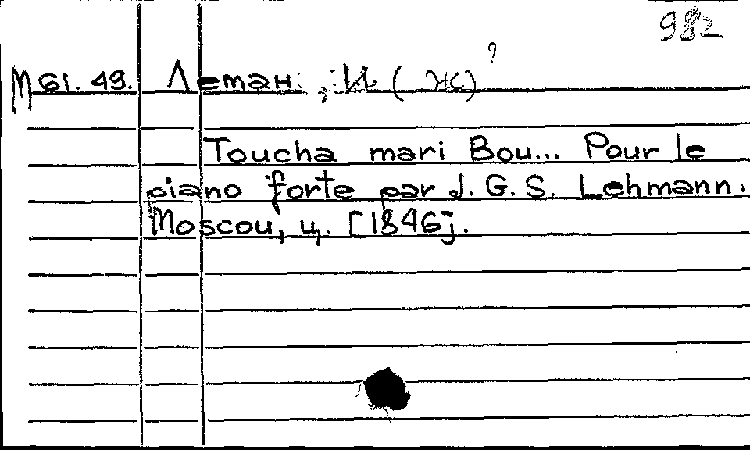 982
М 61. 49. Леман, И (Ж) ?
Toucha mari Bou... Pour le
piano forte par J. G. S. Lehmann.
Moscou, ц. [1846].